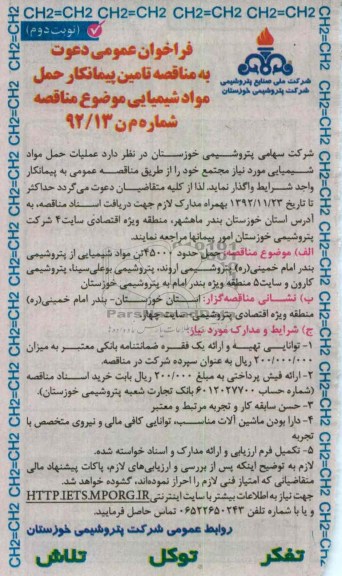 CH2=CH2 CH2=CH2 CH2=CH2 CH2=CH2 CH2=CH2
(نوبت دوم)
شرکت ملی صنایع پتروشیمی
شرکت پتروشیمی خوزستان
فراخوان عمومی دعوت
به مناقصه تامین پیمانکار حمل
مواد شیمیایی موضوع مناقصه
شماره م ن ۹۲/۱۳
شرکت سهامی پتروشیمی خوزستان در نظر دارد عملیات حمل مواد
شیمیایی مورد نیاز مجتمع خود را از طریق مناقصه عمومی به پیمانکار
واجد شرایط واگذار نماید، لذا از کلیه متقاضیان دعوت می‌گردد حداکثر
تا تاریخ ۱۳۹۲/۱۱/۲۳ بهمراه مدارک لازم جهت دریافت اسناد مناقصه، به
آدرس استان خوزستان بندر ماهشهر، منطقه ویژه اقتصادی سایت۴ شرکت
پتروشیمی خوزستان امور پیمانها مراجعه نمایند.
الف) موضوع مناقصه: حمل حدود ۴۵۰۰۰تن مواد شیمیایی از پتروشیمی
بندر امام خمینی(ره) پتروشیمی اروند، پتروشیمی بوعلی‌سینا، پتروشیمی
کارون و سایت۵ منطقه ویژه بندر امام به پتروشیمی خوزستان
ب) نشانی مناقصه‌گزار: استان خوزستان- بندر امام خمینی(ره)
منطقه ویژه اقتصادی پتروشیمی- سایت چهار
ج) شرایط و مدارک مورد نیاز:
۱- توانایی تهیه و ارائه یک فقره ضمانتنامه بانکی معتبر به میزان
۲۰۰/۰۰۰/۰۰۰ ریال به عنوان سپرده شرکت در مناقصه.
۲- ارائه فیش پرداختی به مبلغ ۲۰۰/۰۰۰ ریال بابت خرید اسناد مناقصه
(شماره حساب ۶۰۱۲۰۲۷۷۰۰ بانک تجارت شعبه پتروشیمی خوزستان).
۳- حسن سابقه کار و تجربه مرتبط و معتبر
۴- دارا بودن ماشین آلات مناسب، توانایی کافی مالی و نیروی متخصص با
تجربه
۵- تکمیل فرم ارزیابی و ارائه مدارک و اسناد خواسته شده.
لازم به توضیح اینکه پس از بررسی و ارزیابی‌های لازم، پاکات پیشنهاد مالی
متقاضیانی که امتیاز فنی لازم را احراز نموده‌اند، گشوده خواهد شد.
جهت نیاز به اطلاعات بیشتر با سایت اینترنتی HTTP.IETS.MPORG.IR
و یا با شماره تلفن ۰۶۵۲۲۶۵۰۲۴۳ تماس حاصل فرمایید.
روابط عمومی شرکت پتروشیمی خوزستان
تفکر توکل تلاش